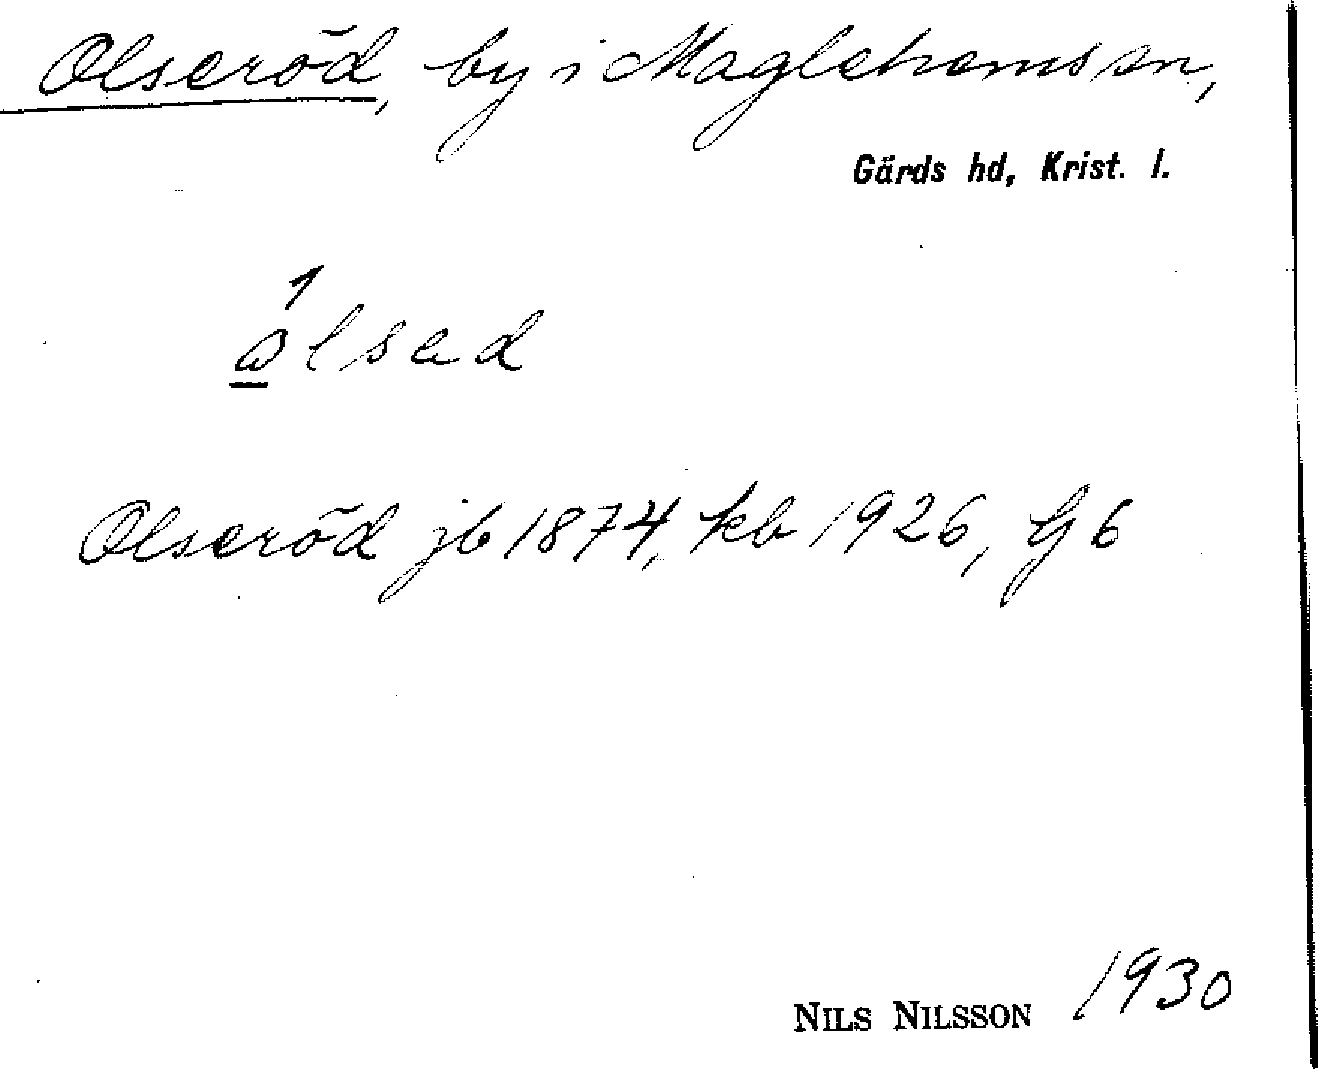 Olseröd, by i Maglehems sn,
Gärds hd, Krist. l.
ólsad
Olseröd jb 1874, kb 1926, Gb
NILS NILSSON 1930